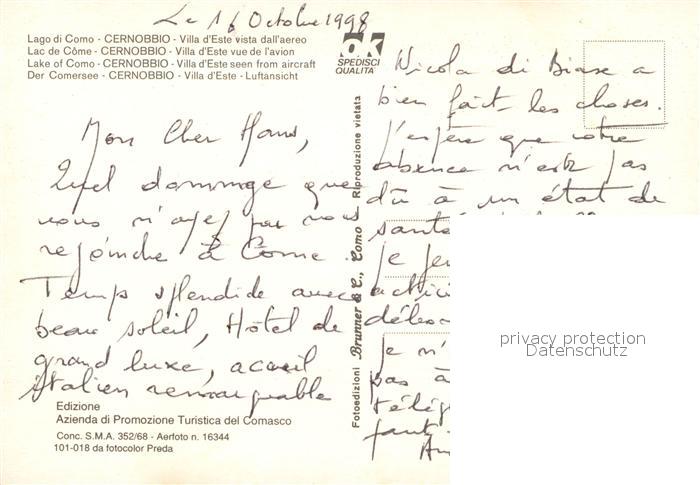 Le 16 Octobre 1998
Lago di Como - CERNOBBIO - Villa d'Este vista dall'aereo
Lac de Côme - CERNOBBIO - Villa d'Este vue de l'avion
Lake of Como - CERNOBBIO - Villa d'Este seen from aircraft
Der Comersee - CERNOBBIO - Villa d'Este - Luftansicht
ok
SPEDISCI
QUALITA'
Mon Cher Hans,
Quel dommage que
vous n'ayez pu nous
rejoindre à Come.
Temps splendide avec
beau soleil, Hôtel de
grand luxe, accueil
italien remarquable
Edizione
Azienda di Promozione Turistica del Comasco
Conc. S.M.A. 352/68 - Aerfoto n. 16344
101-018 da fotocolor Preda
Fotoedizioni Brunner & C., Como - Riproduzione vietata
Nicola di Biase a
bien fait les choses.
J'espère que votre
absence n'est pas
dû à un état de
santé
je
je n'
pas à
privacy protection
Datenschutz